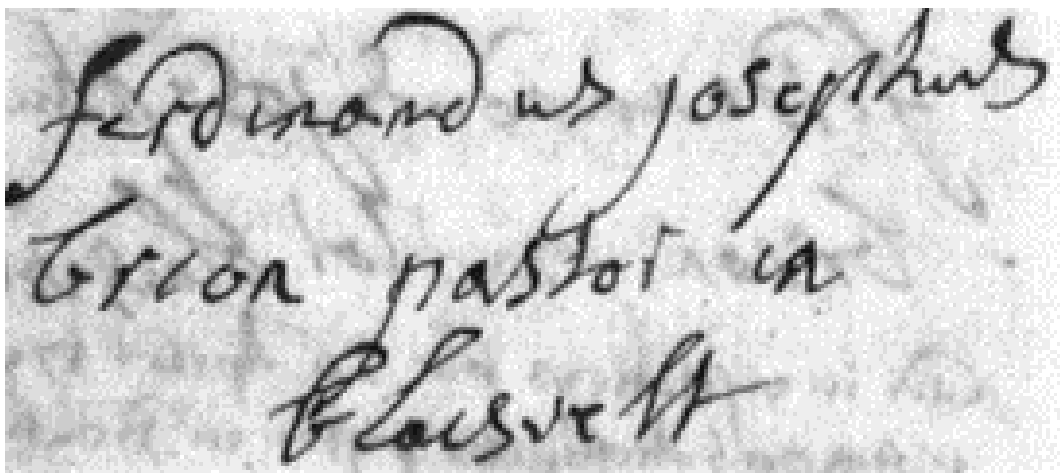 ferdinandus josephus
brion pastor in
blaesvelt